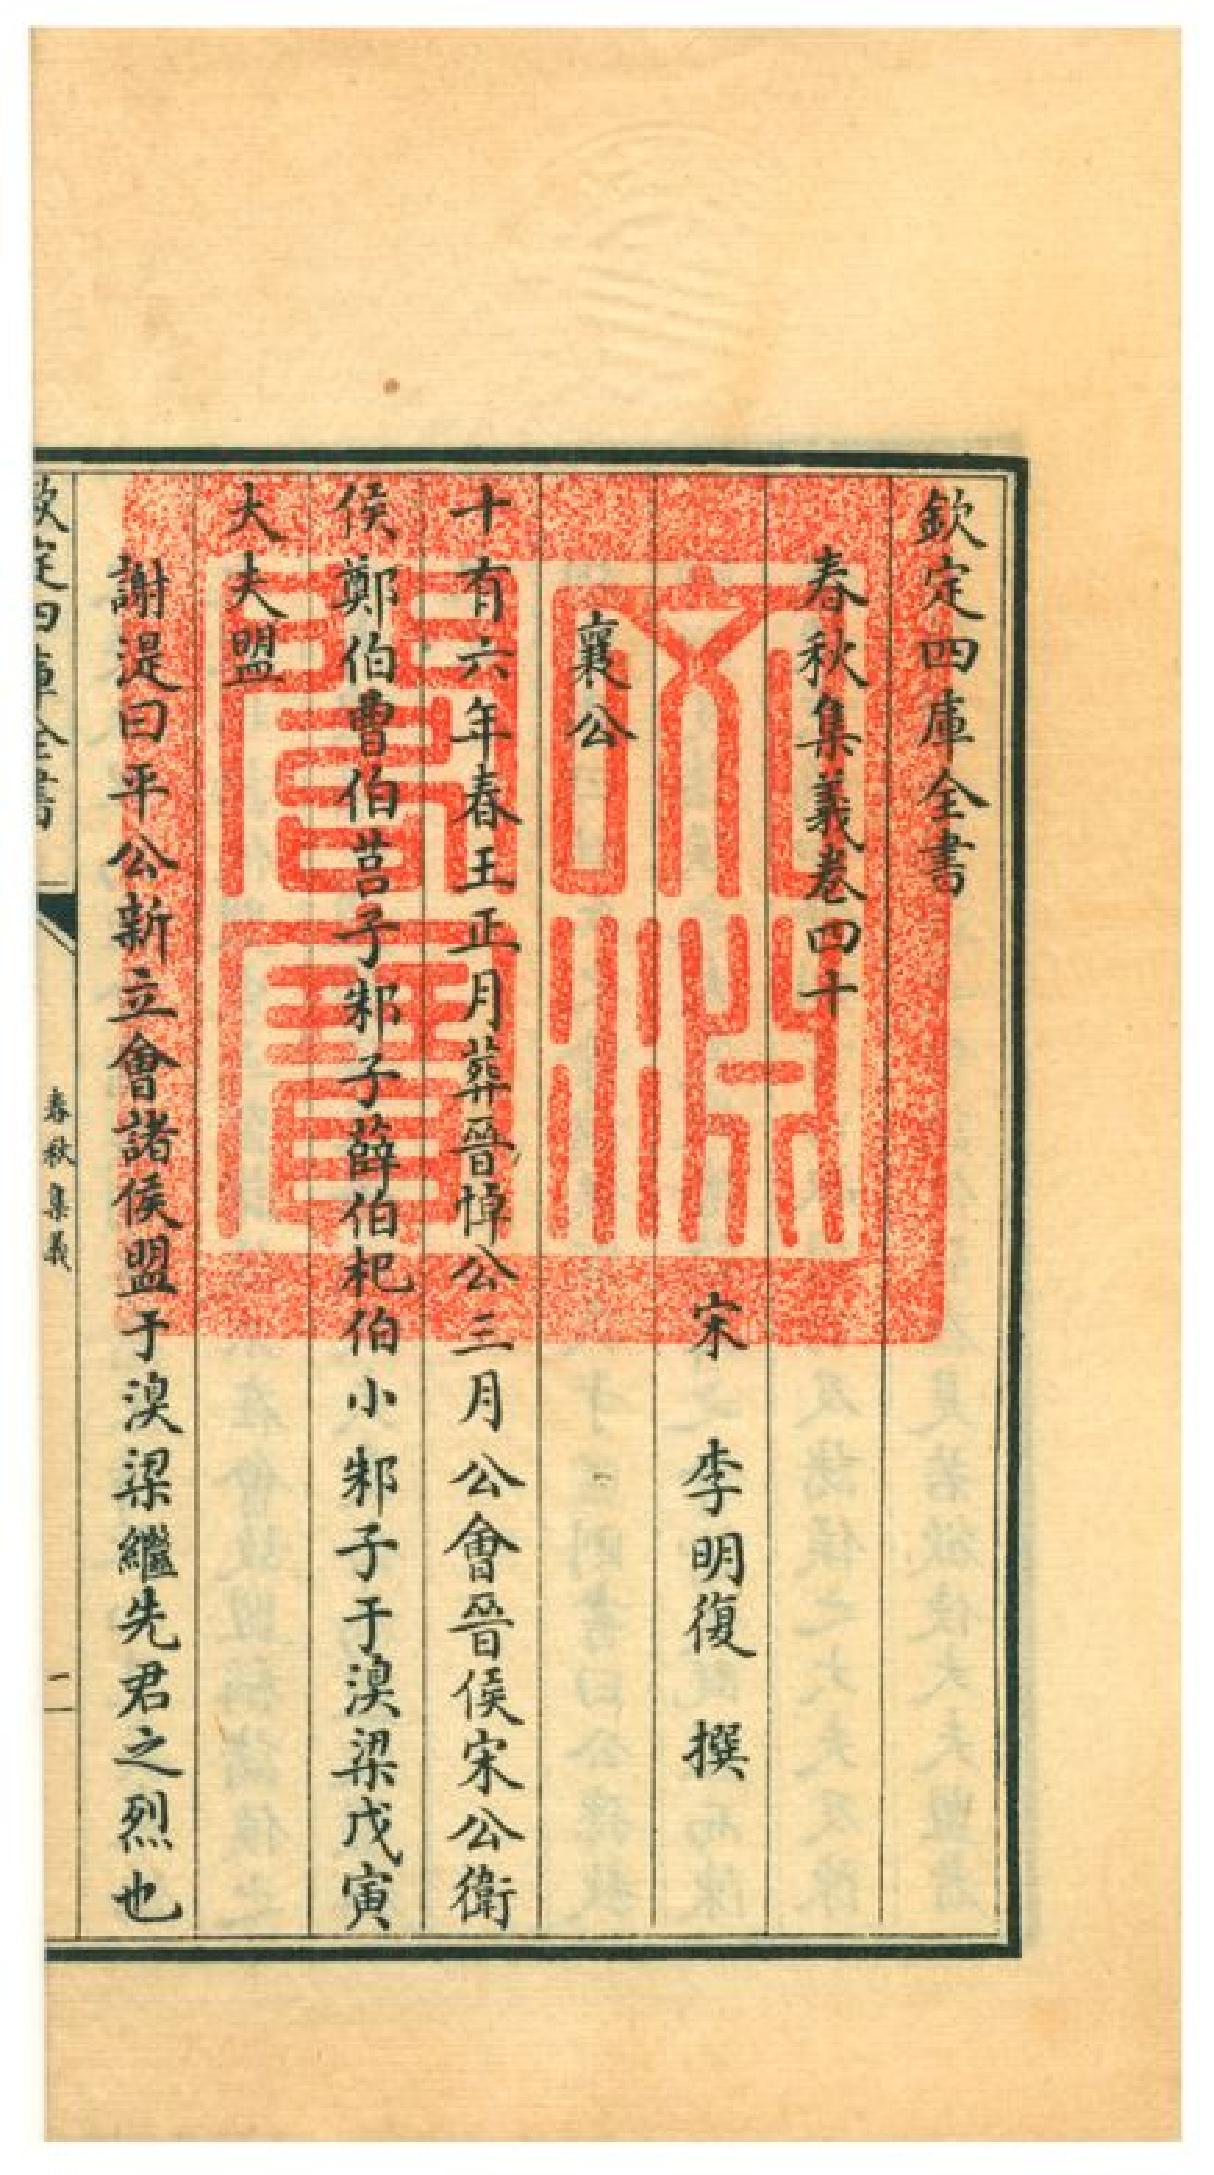 欽定四庫全書
春秋集義卷四十
宋　李明復　撰
襄公
十有六年春王正月葬晉悼公三月公會晉侯宋公衛
侯鄭伯曹伯莒子邾子薛伯杞伯小邾子于湨梁戊寅
大夫盟
謝湜曰平公新立會諸侯盟于湨梁繼先君之烈也
欽定四庫全書
春秋集義
文淵閣寶